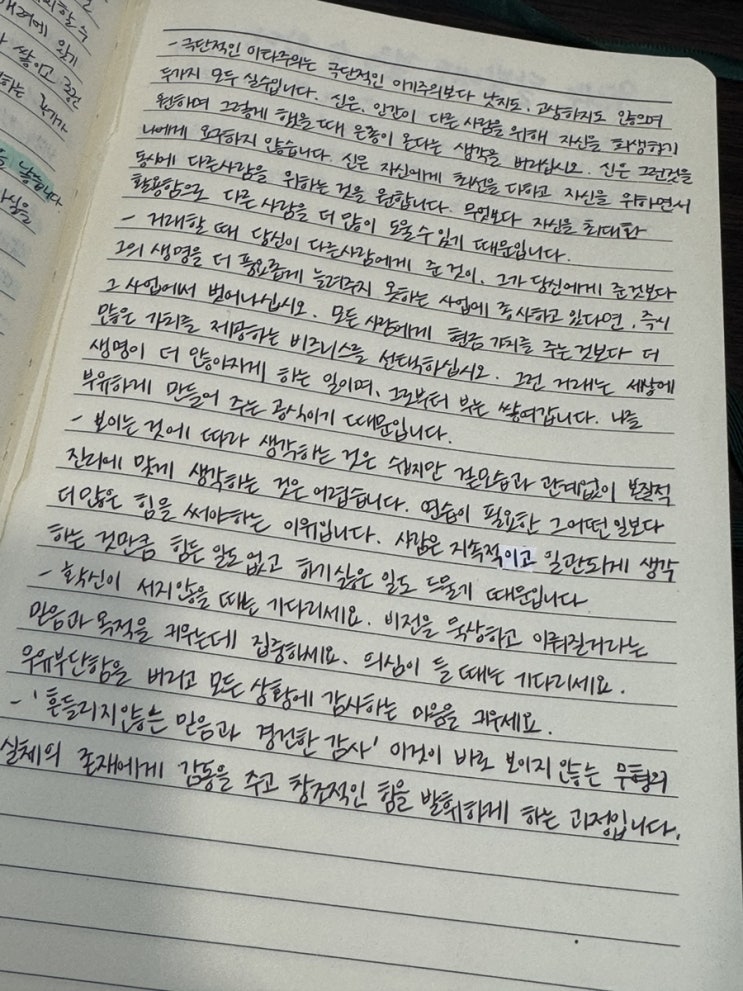 지할 수
내려에 있기
쌓이고 금전
하는 국가가
낳습니다.
자식을
- 극단적인 이타주의는 극단적인 이기주의보다 낫지도, 고상하지도 않으며
두가지 모두 실수입니다. 신은, 인간이 다른 사람을 위해 자신을 희생하기
원하며 그렇게 했을때 은총이 온다는 생각을 버리십시오. 신은 그런것을
나에게 요구하지 않습니다. 신은 자신에게 최선을 다하고 자신을 위하면서
동시에 다른사람을 위하는 것을 원합니다. 무엇보다 자신을 최대화
활용함으로 다른 사람을 더 많이 도울 수 있기 때문입니다.
- 거래할 때 당신이 다른사람에게 준 것이, 그가 당신에게 준것보다
그의 생명을 더 풍요롭게 늘려주지 못하는 사업에 종사하고 있다면, 즉시
그 사업에서 벗어나십시오. 모든 사람에게 현금 가치를 주는것보다 더
많은 가치를 제공하는 비즈니스를 선택하십시오. 그런 거래는 세상에
생명이 더 많아지게 하는 일이며, 그로부터 부는 쌓여갑니다. 나를
부유하게 만들어 주는 공식이기 때문입니다.
- 보이는 것에 따라 생각하는 것은 쉽지만 겉모습과 관계없이 본질적
진리에 맞게 생각하는 것은 어렵습니다. 연습이 필요한 그 어떤 일보다
더 많은 힘을 써야하는 이유입니다. 사람은 지속적이고 일관되게 생각
하는 것만큼 힘든 일도 없고 하기 싫은 일도 드물기 때문입니다
- 확신이 서지 않을 때는 기다리세요. 비전을 묵상하고 이뤄질거라는
믿음과 목적을 키우는데 집중하세요. 의심이 들 때는 기다리세요.
우유부단함을 버리고 모든 상황에 감사하는 마음을 키우세요.
- '흔들리지않는 믿음과 경건한 감사' 이것이 바로 보이지 않는 무형의
실체의 존재에게 감동을 주고 창조적인 힘을 발휘하게 하는 과정입니다.